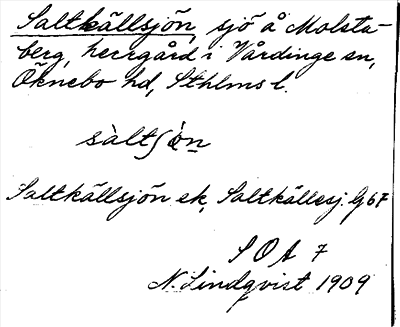 Saltkällsjön, sjö å Molsta-
berg, herrgård i Vårdinge sn,
Öknebo hd, Sthlms l.
sàltʃö̀n
Saltkällsjön ek, Saltkällesj. G 67
SOA 7
N. Lindqvist 1909